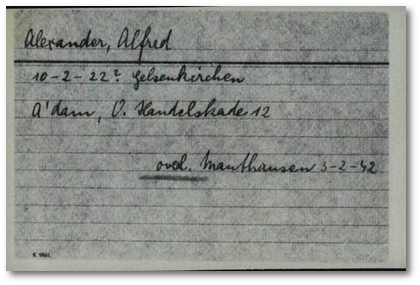 Alexander, Alfred
10-2-22? Gelsenkirchen
A'dam, O. Handelskade 12
ovel. Mauthausen 3-2-42